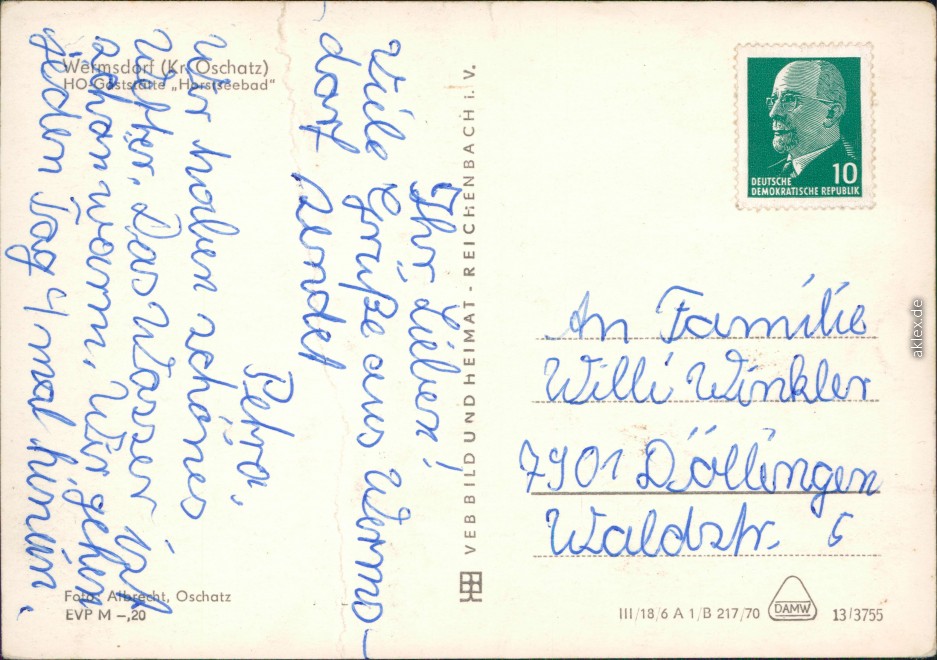 Wermsdorf (Kr. Oschatz)
HO-Gaststätte „Horstseebad“
Ihr Lieben!
Viele Grüße aus Werms-
dorf sendet
Petra.
Wir haben schönes
Wetter. Das Wasser ist
schon warm. Wir gehen
jeden Tag 4 mal hinein.
Foto: Albrecht, Oschatz
EVP M –,20
VEB BILD UND HEIMAT - REICHENBACH i. V.
DEUTSCHE 10
DEMOKRATISCHE REPUBLIK
An Familie
Willi Winkler
7901 Döllingen
Waldstr. 6
III/18/6 A 1/B 217/70 DAMW 13/3755
aklex.de